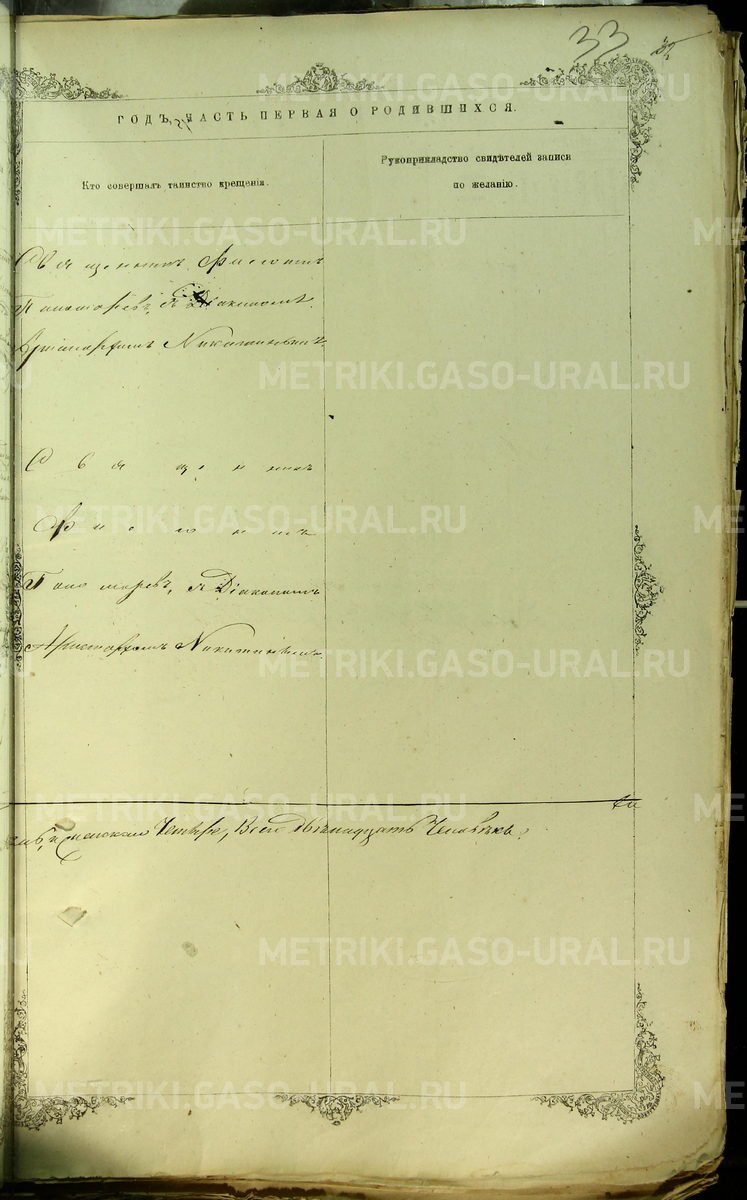 33
ГОДЪ, ЧАСТЬ ПЕРВАЯ О РОДИВШИХСЯ.
Кто совершалъ таинство крещенія.
Рукоприкладство свидѣтелей записи
по желанію.
Священникъ
Пономаревъ, съ Діакономъ
Аристархомъ Никитинымъ
Священник
Пономаревъ, съ Діакономъ
Аристархомъ Никитинымъ
женска Четыре, Всего двѣнадцать Человѣкъ.
METRIKI.GASO-URAL.RU